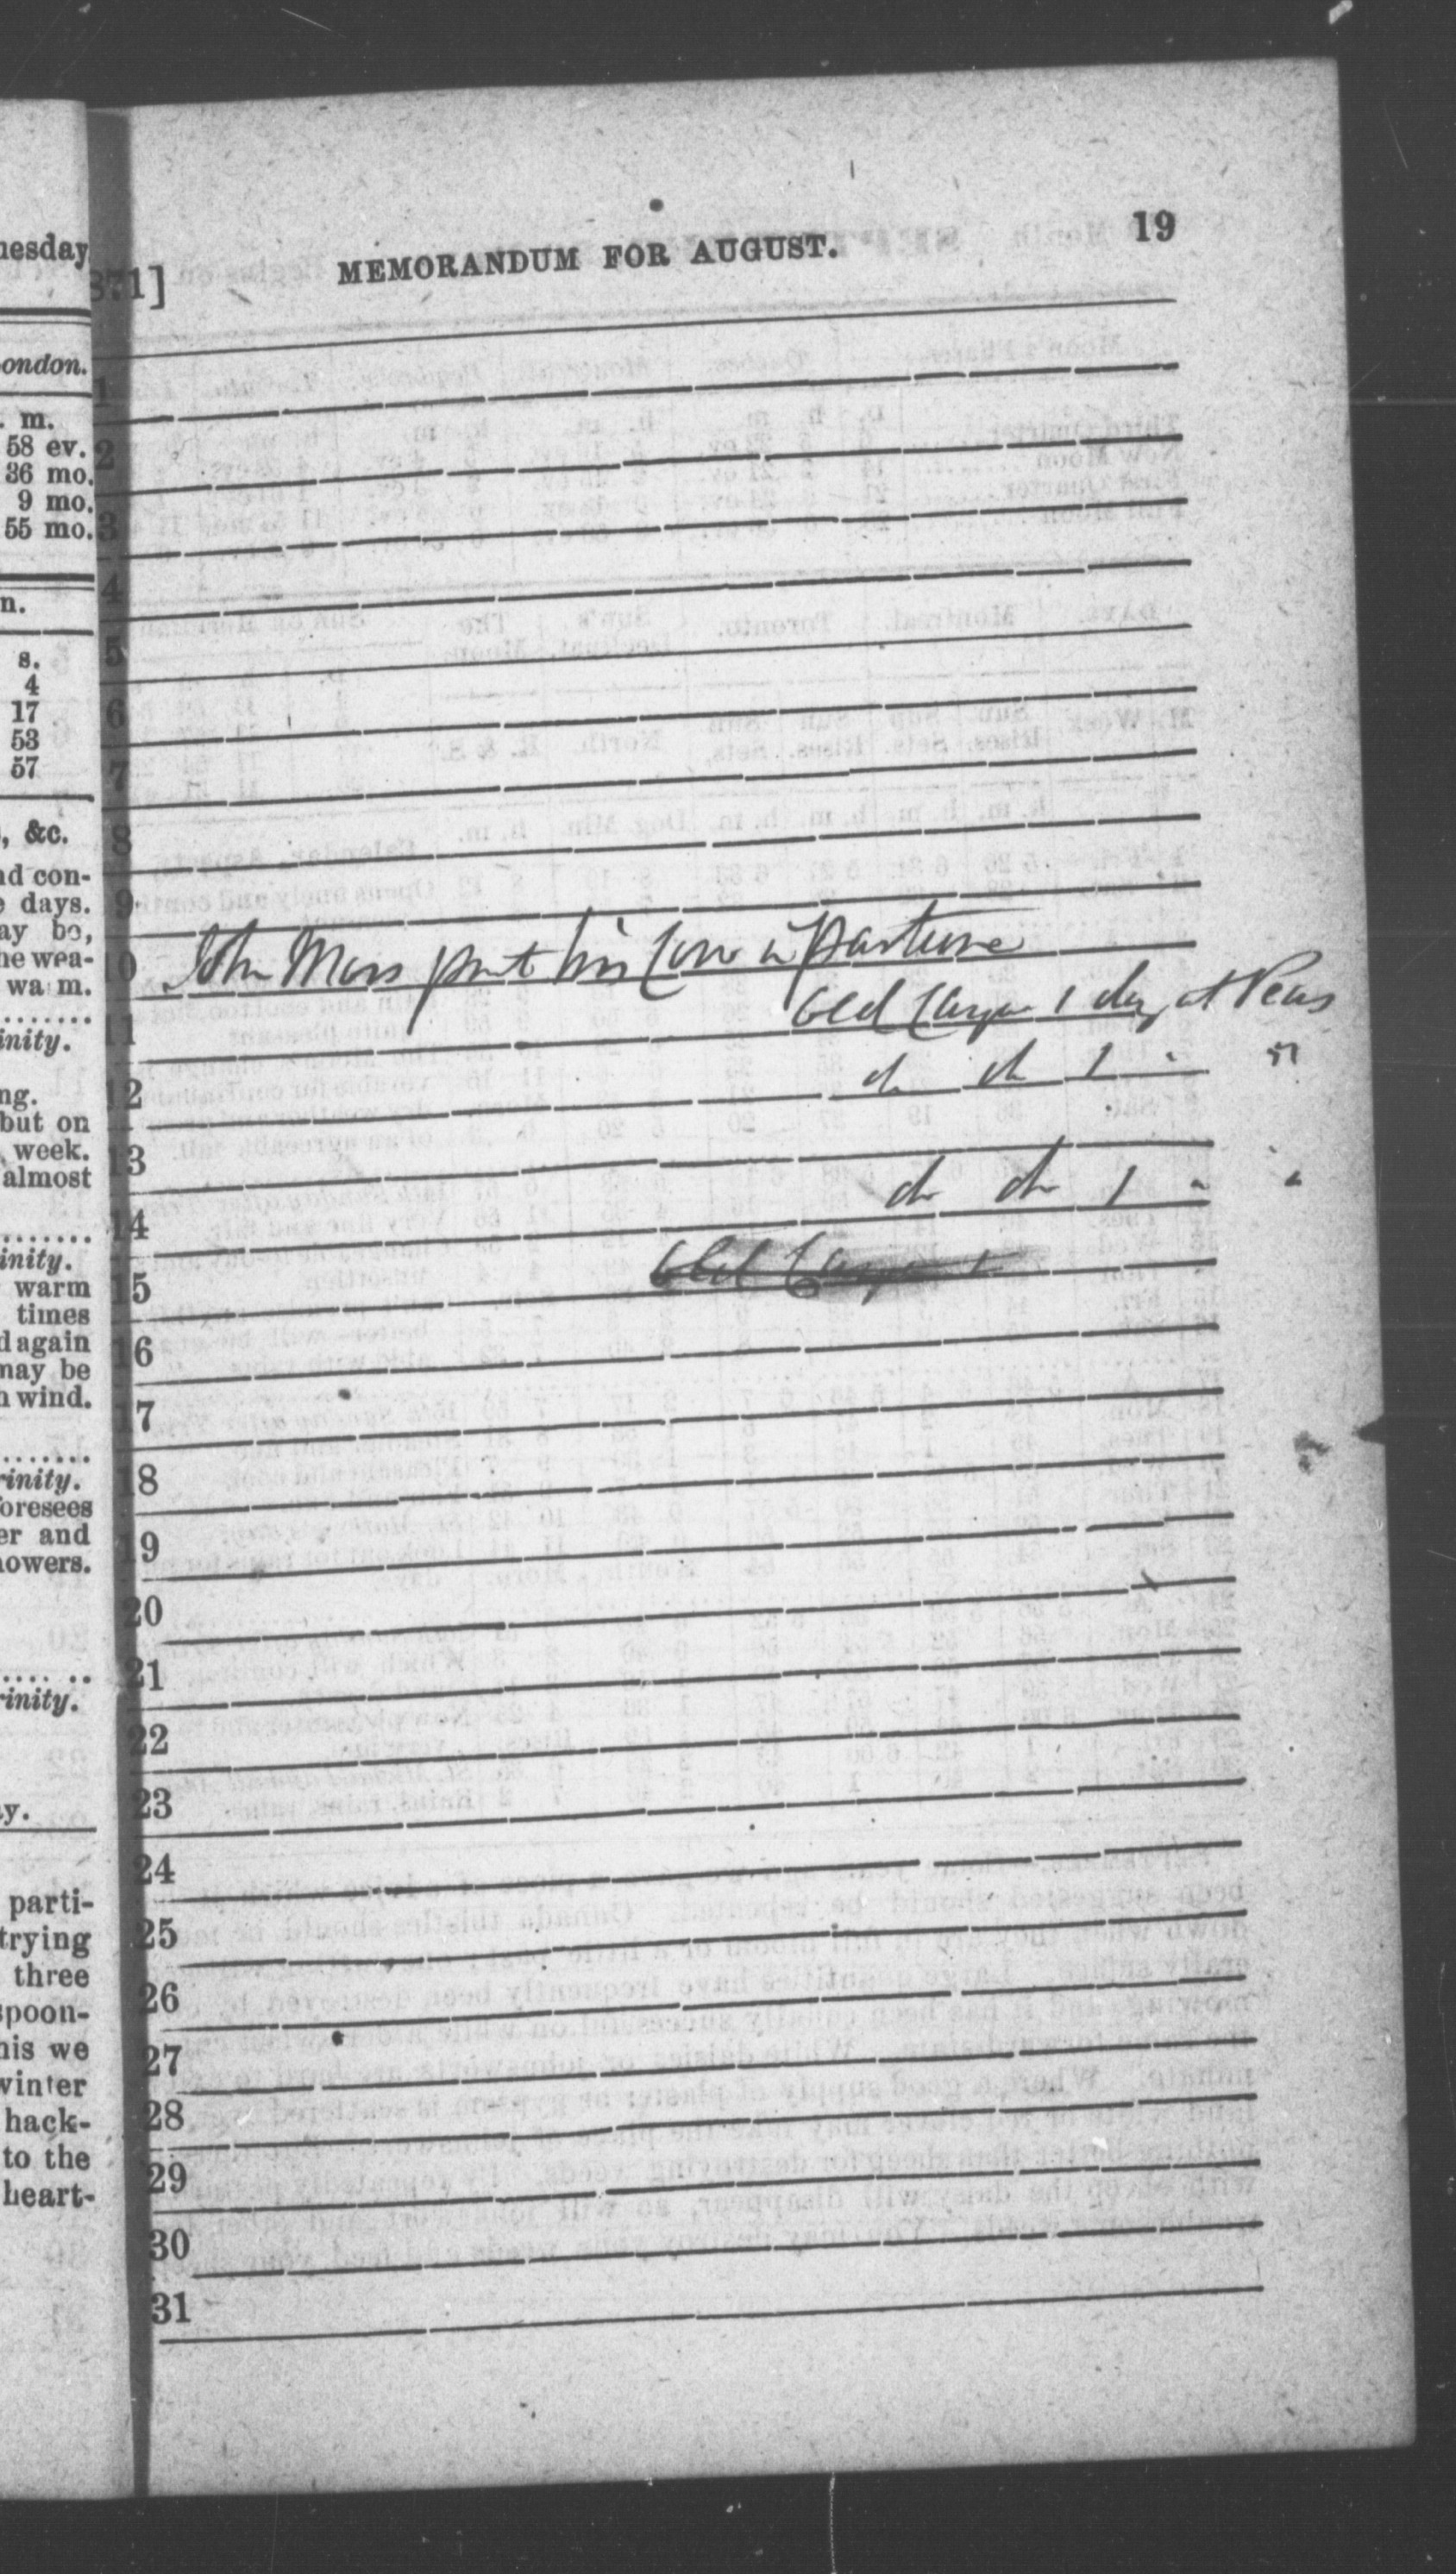 nesday
ondon.
. m.
58 ev.
36 mo.
9 mo.
55 mo.
n.
s.
4
17
53
57
, &c.
nd con-
e days.
ay be,
he wea-
wa m.
inity.
ng.
but on
week.
almost
inity.
warm
times
d again
may be
h wind.
rinity.
foresees
er and
howers.
rinity.
ay.
parti-
trying
three
spoon-
his we
winter
hack-
to the
heart-
871] MEMORANDUM FOR AUGUST. 19
1
2
3
4
5
6
7
8
9
10 John Moss put his Cow in Pasture
11 Old 1 day at Peas
12 do do 1 " "
13
14 do do 1 " "
15 Old
16
17
18
19
20
21
22
23
24
25
26
27
28
29
30
31